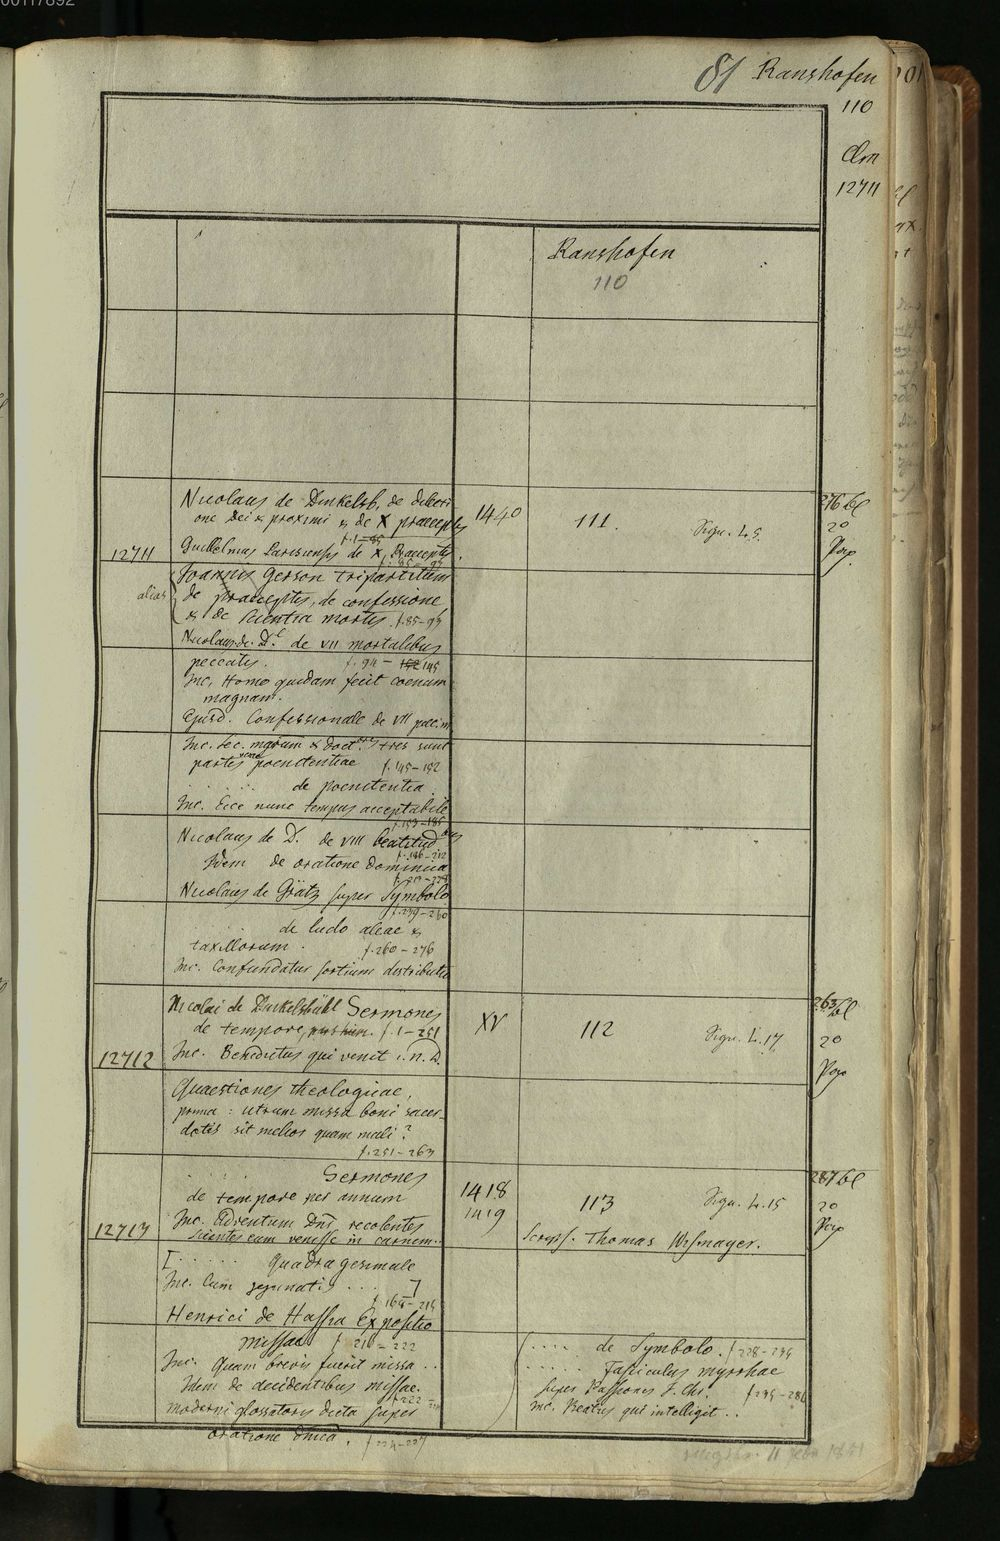 00117892
81 Ranshofen
110
Clm
12711
Ranshofen
110
Nicolaus de Dinkelsb. de dilecti
one Dei & proximi & de X praeceptis
f. 1-85
1440
111.
Sign. L. 9.
276 bl
2o
Pap
12711
Guillelmus Parisiensis de X. Praeceptis
alias
Joannis Gerson tripartitum
de praeceptis, de confessione
& de scientia mortis. f. 85-94
Nicolaus de D. de VII mortalibus
peccatis. f. 94 - 152 145
Inc. Homo quidam fecit coenam
magnam.
Ejusd. Confessionale de VII
Inc. Sec. mgrum & doct. tres sunt
partes verae poenitentiae f. 145-152
. . . . . de poenitentia
Inc. Ecce nunc tempus acceptabile
f. 153-185
Nicolaus de D. de VIII beatitud
f. 186-212
Idem de oratione dominica
Nicolaus de Grätz super Symbolo
f. 239-260
. . . . . de ludo aleae &
taxillorum. f. 260-276
Inc. Confundatur sortium distributio
Nicolai de Dinkelsbühl Sermones
de tempore, f. 1-251
XV
112
Sign. L. 17
263 bl
2o
Pap
12712
Inc. Benedictus qui venit i. n. D.
Quaestiones theologicae,
prima: utrum missa boni sacer-
dotis sit melior quam mali?
f. 251-263
. . . . . Sermones
de tempore per annum
1418
1419
113
Sign. L. 15
287 bl
2o
Pap
12713
Inc. Adventum Dni recolentes
scientes eum venisse in carnem.
Scrips. Thomas Wismayer.
[ . . . . . Quadragesimale
Inc. Cum jejunatis . . . ]
f. 164-215
Henrici de Hassia Expositio
missae f. 216-222
Inc. Quam brevis fuerit missa . .
Idem de decidentibus missae.
f. 222
Moderni glossatoris dicta super
oratione dnica. f. 224-227
. . . . de Symbolo. f. 228-234
. . . . . Fasciculus myrrhae
super Passiones J. Chr. f. 235-286
Inc. Beatus qui intelligit . .